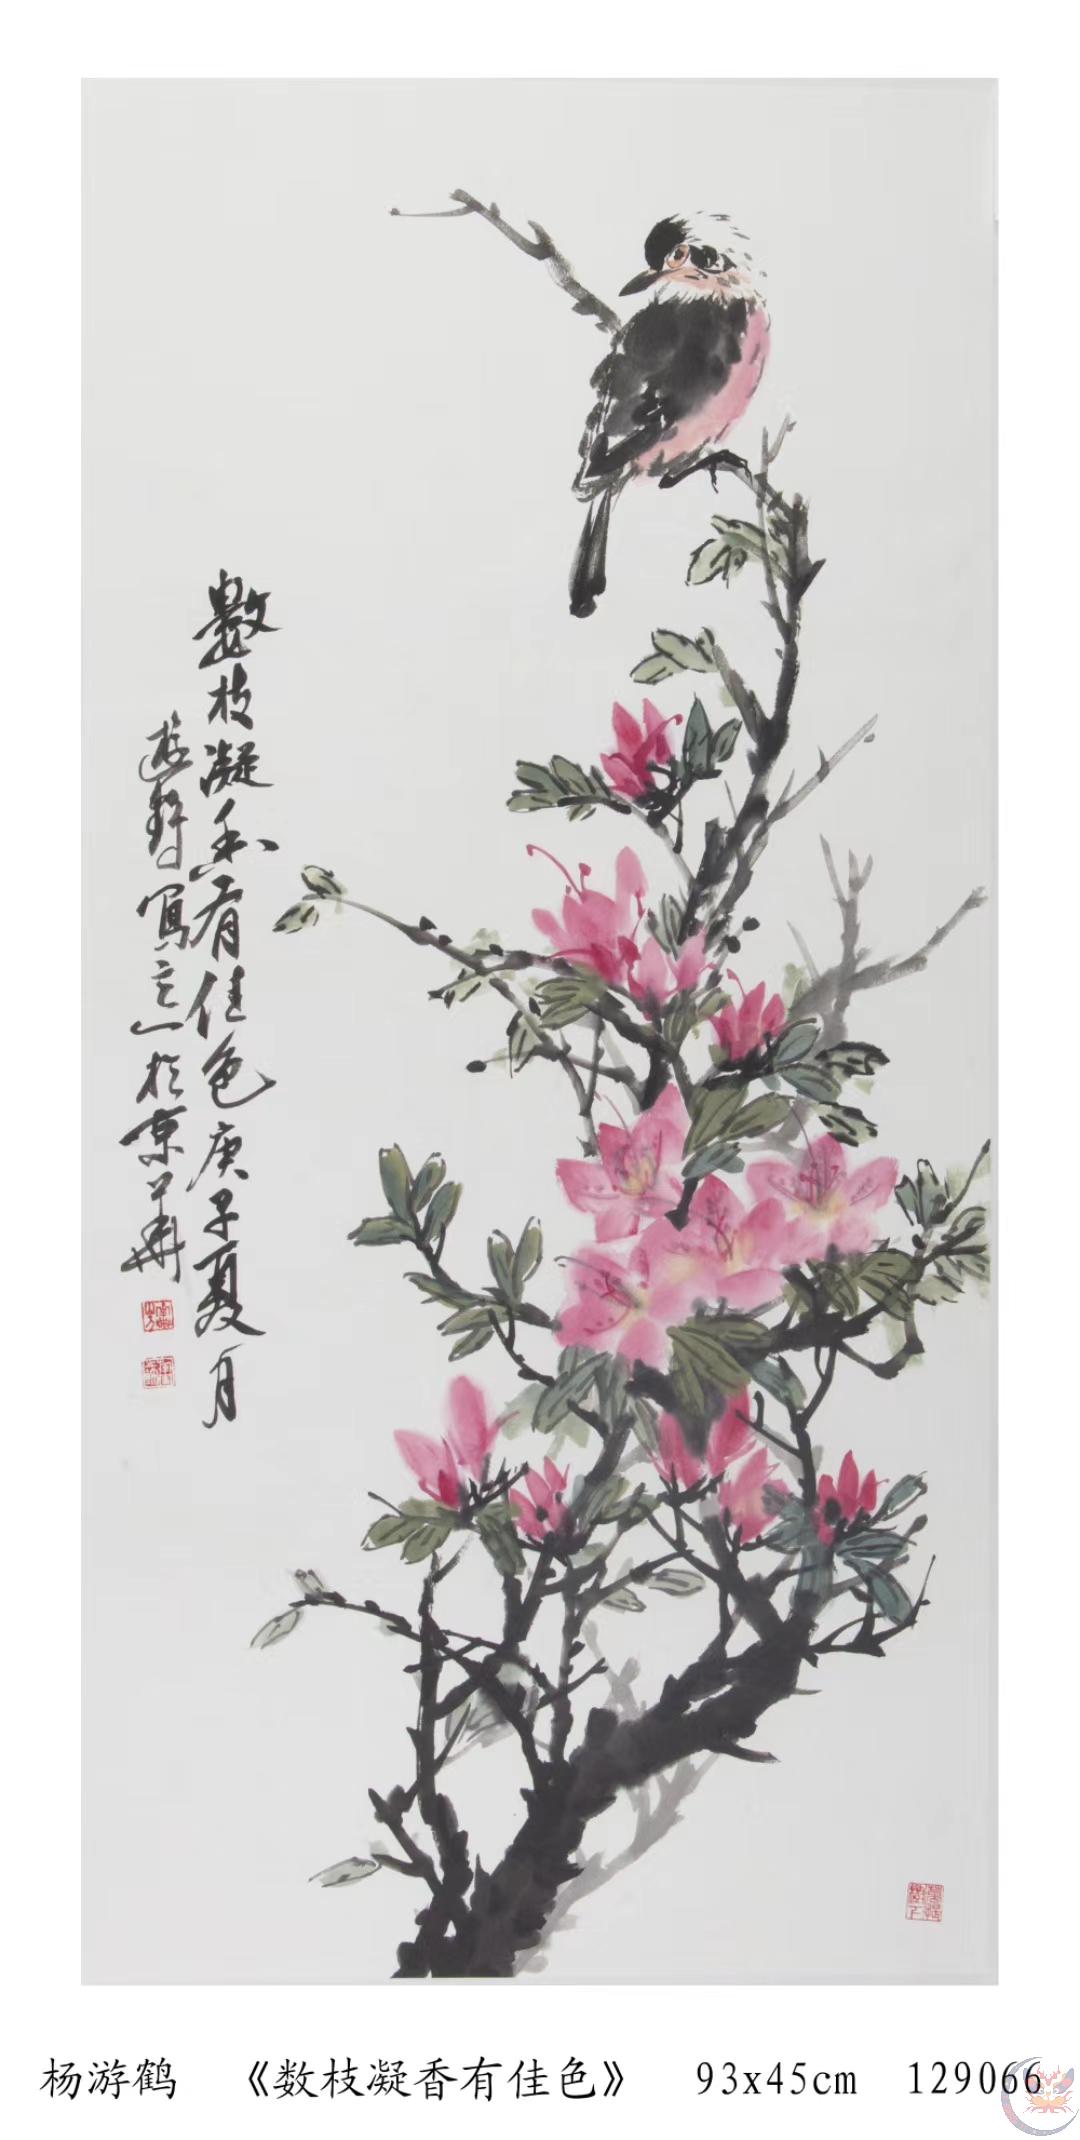 數枝凝香有佳色庚子夏月
游鶴寫之於京華
杨游鹤 《数枝凝香有佳色》 93x45cm 129066